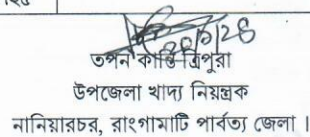 তপন কান্তি ত্রিপুরা
উপজেলা খাদ্য নিয়ন্ত্রক
নানিয়ারচর, রাংগামাটি পার্বত্য জেলা ।